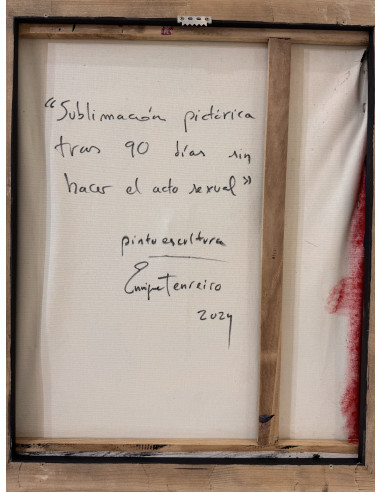 “Sublimación pictórica
tras 90 días sin
hacer el acto sexual”
pintuescultura
Enrique Tenreiro
2024